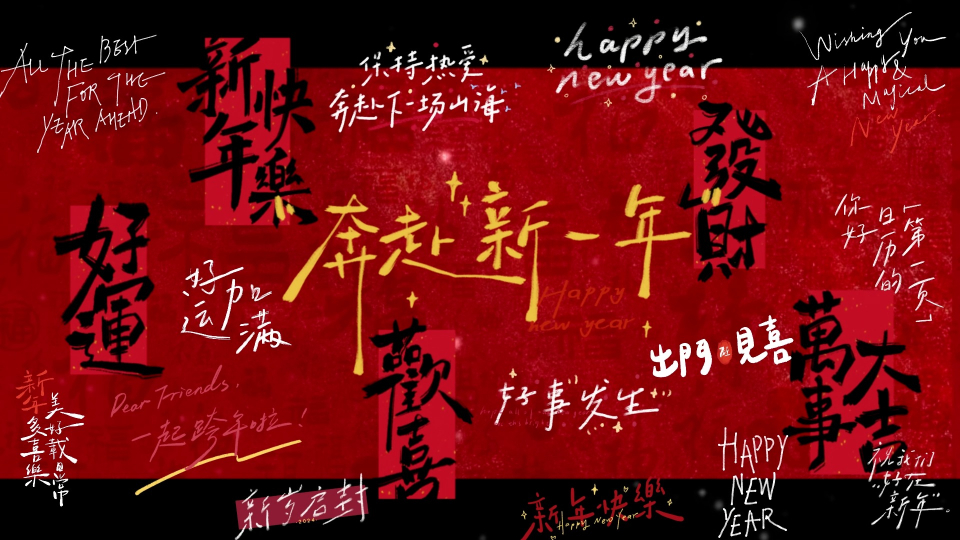 ALL THE BEST
FOR THE
YEAR AHEAD.
新年
快樂
保持热爱
奔赴下一场山海
happy
new year
Wishing You
A Happy &
Magical
New Year
發財
好運
好运
加满
奔赴新一年
Happy
new year
你好
日历的
第一页」
出門
見喜
萬事
大吉
歡喜
好事“发生”
Dear Friends,
一起跨年啦！
新年多喜樂
美好載日常
新岁启封
2024
新年快樂
Happy New Year
HAPPY
NEW
YEAR
祝我们
“好在
新年”。